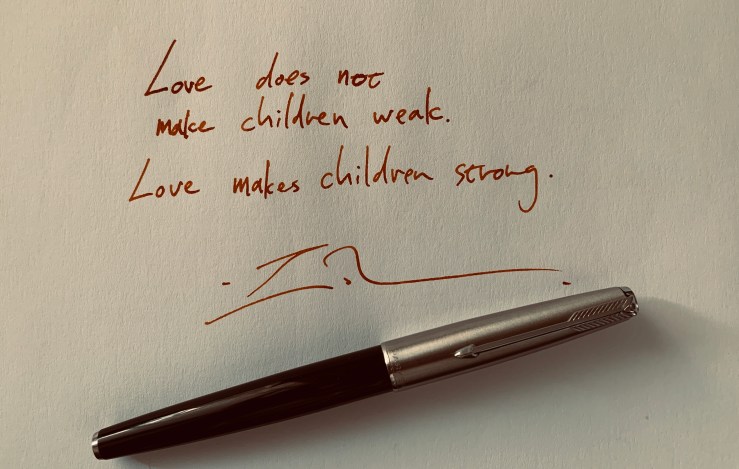 Love does not
make children weak.
Love makes children strong.